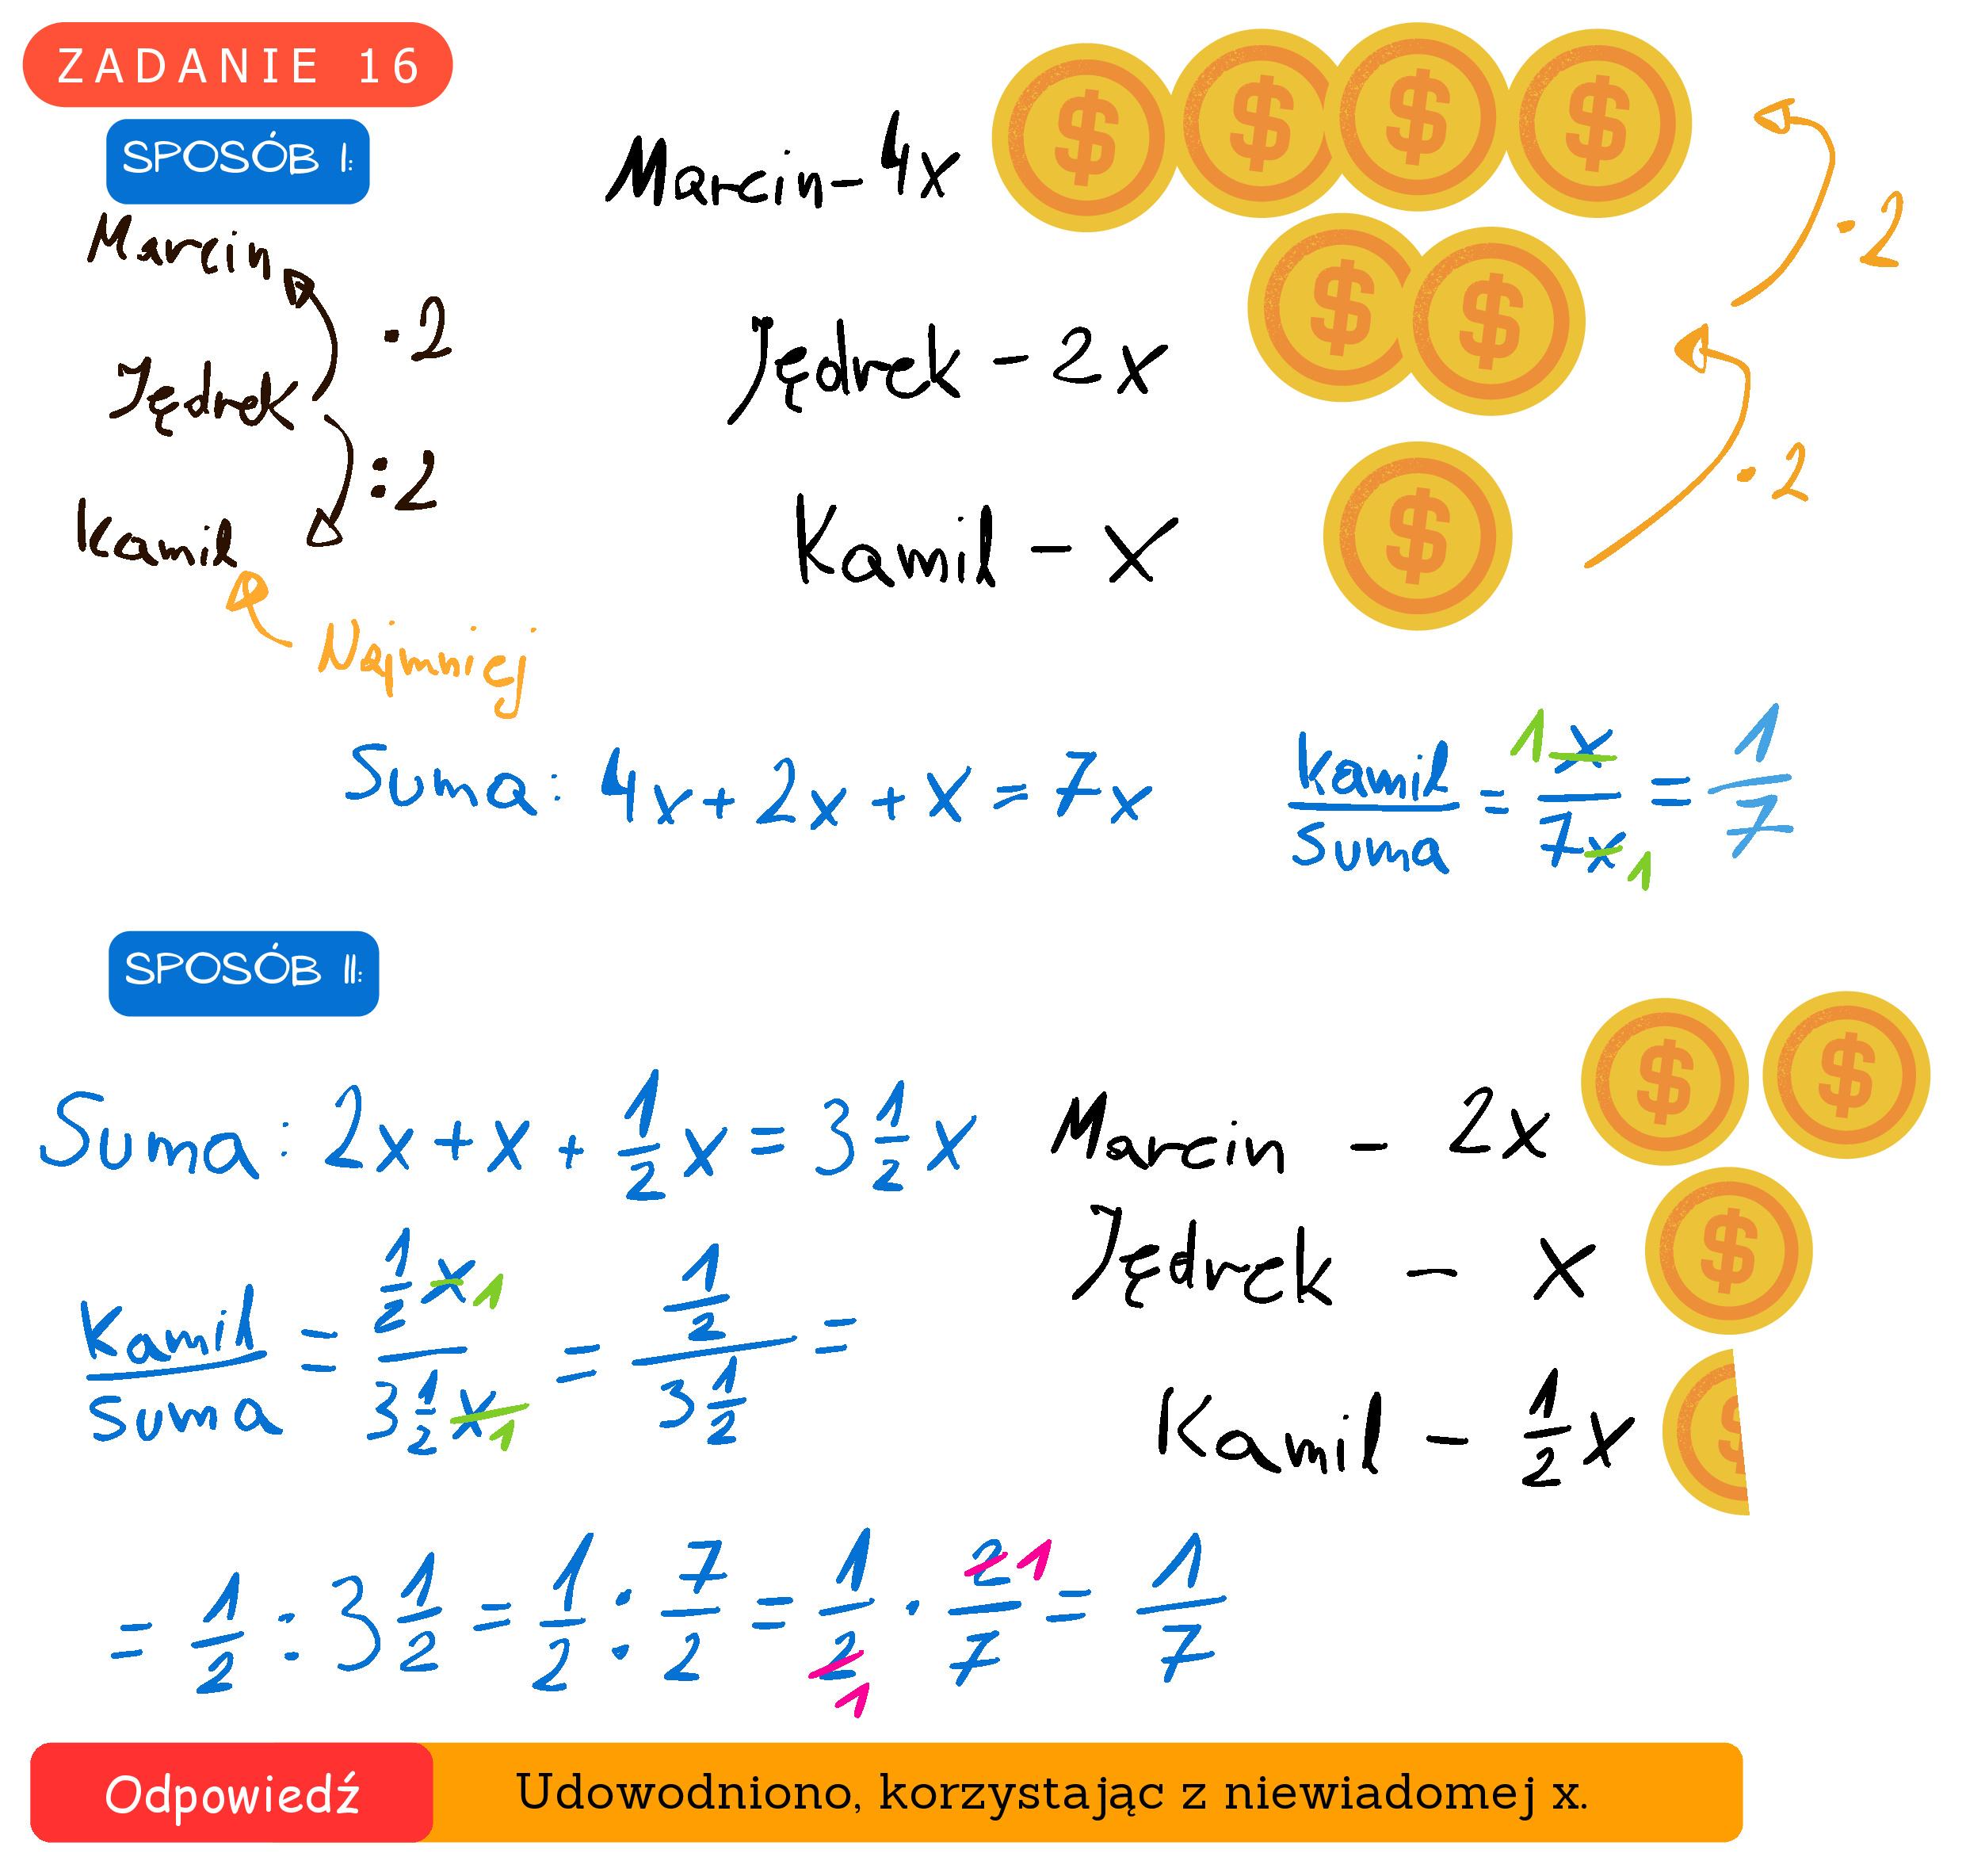 ZADANIE 16
SPOSÓB I:
Marcin
·2
Jędrek
:2
Kamil
Najmniej
Marcin - 4x
Jędrek - 2x
Kamil - x
·2
·2
Suma: 4x + 2x + x = 7x
kamil/suma = 1x/7x1 = 1/7
SPOSÓB II:
Suma: 2x + x + 1/2 x = 3 1/2 x
Marcin - 2x
Jędrek - x
Kamil - 1/2 x
Kamil/suma = 1/2 x1 / 3 1/2 x1 = 1/2 / 3 1/2 =
= 1/2 : 3 1/2 = 1/2 : 7/2 = 1/2 1 · 2 1/7 = 1/7
Odpowiedź
Udowodniono, korzystając z niewiadomej x.